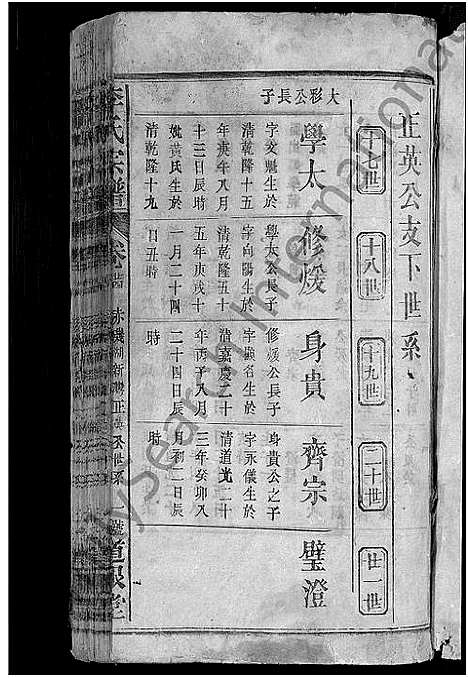 正英公支下世系
十七世
十八世
十九世
二十世
廿一世
大彩公長子
學太
字文魁生於
清乾隆十五
年庚午八月
十三日辰時
妣黃氏生於
清乾隆十九
修煖
學太公長子
字向陽生於
清乾隆五十
五年庚戌十
一月二十四
日丑時
身貴
修煖公長子
字顯名生於
清嘉慶二十
年丙子八月
二十四日辰
時
齊宗
身貴公之子
字永儀生於
清道光二十
三年癸卯八
月初二日辰
時
璧澄
李氏宗譜
卷
正英公世系
一號
道琅堂
MySearch International